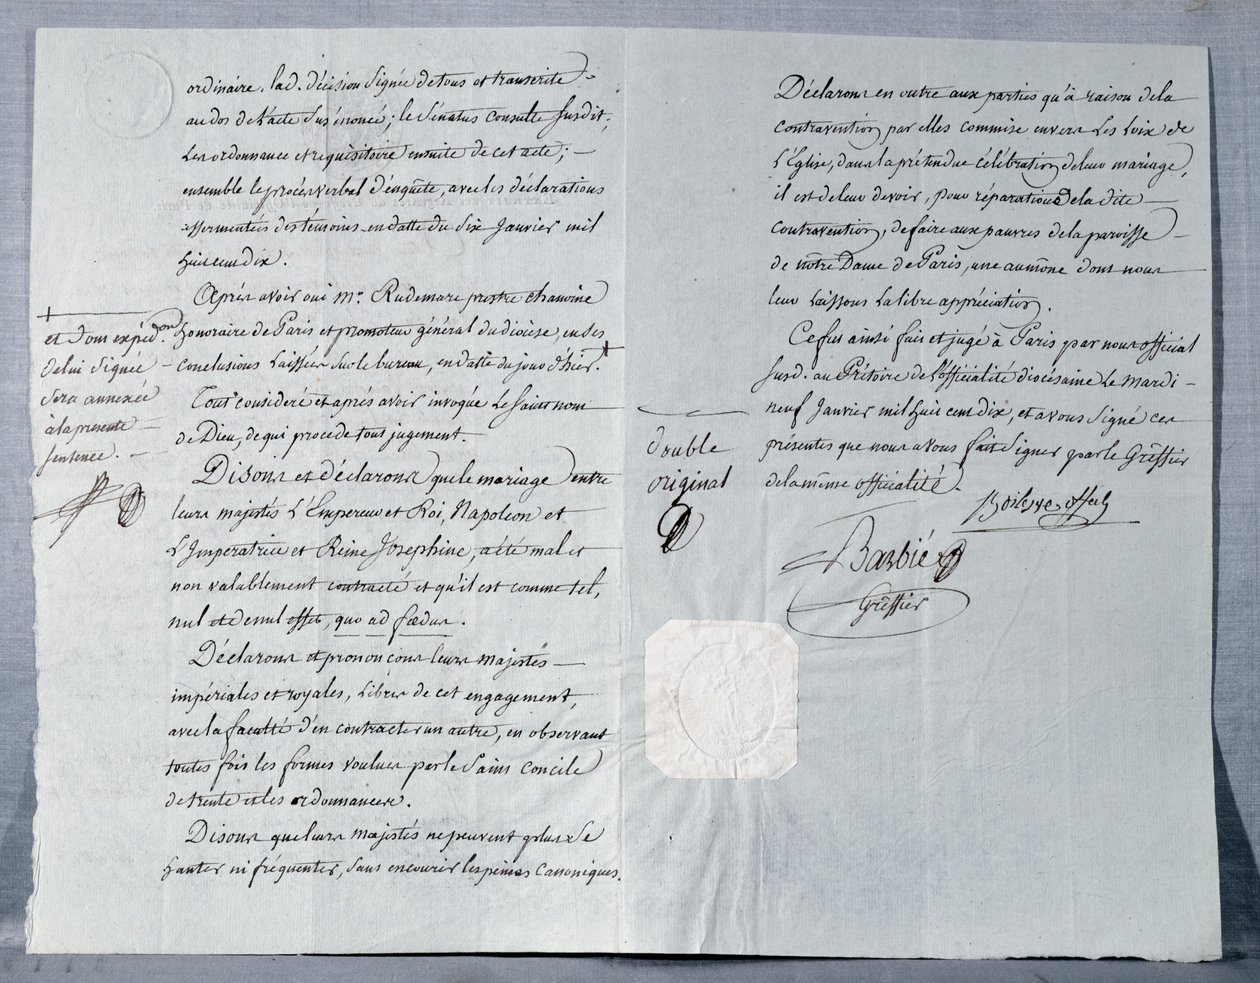 ordinaire, lad. décision signée de tous et transcrite
au dos de l'acte sus énoncé; le Sénatus consulte susdit,
les ordonnance et réquisitoire ensuite de cet acte; —
ensemble le procès verbal d'enquête, avec les déclarations
assermentées des témoins en datte du six Janvier mil
huit cent dix.
Après avoir oui Mr. Rudemare prestre chanoine
honoraire de Paris et promoteur général du diocèse, en ses
conclusions laissées sur le bureau, en datte du jour d'hier. +
+
et dont expéd.on
de lui signée —
sera annexée
à la présente —
sentence. —
Tout considéré et après avoir invoqué le saint nom
de Dieu, de qui procede tout jugement.
Disons et déclarons que le mariage entre
leurs majestés L'Empereur et Roi, Napoléon et
L'Impératrice et Reine Josephine, a été mal et
non valablement contracté et qu'il est comme tel,
nul et de nul effet, quo ad fœdus.
Déclarons et prononçons leurs majestés —
impériales et royales, libres de cet engagement,
avec la faculté d'en contracter un autre, en observant
toutes fois les formes voulues par le Saint Concile
de trente et les ordonnances.
Disons que leurs majestés ne peuvent plus se
hanter ni fréquenter, sans encourir les peines canoniques.
Déclarons en outre aux parties qu'à raison de la
contravention par elles commise envers les loix de
L'Église, dans la prétendue célébration de leur mariage,
il est de leur devoir, pour réparation de la dite —
contravention, de faire aux pauvres de la paroisse —
de nôtre Dame de Paris, une aumône dont nous
leur laissons la libre appréciation.
Ce fut ainsi fait et jugé à Paris par nous official
susd. au Prétoire de L'officialité diocésaine le mardi —
neuf Janvier mil huit cent dix, et avons signé ces
présentes que nous avons fait signer par le Greffier
de la même officialité.
double
original
Boilesve offal
Barbié
Greffier